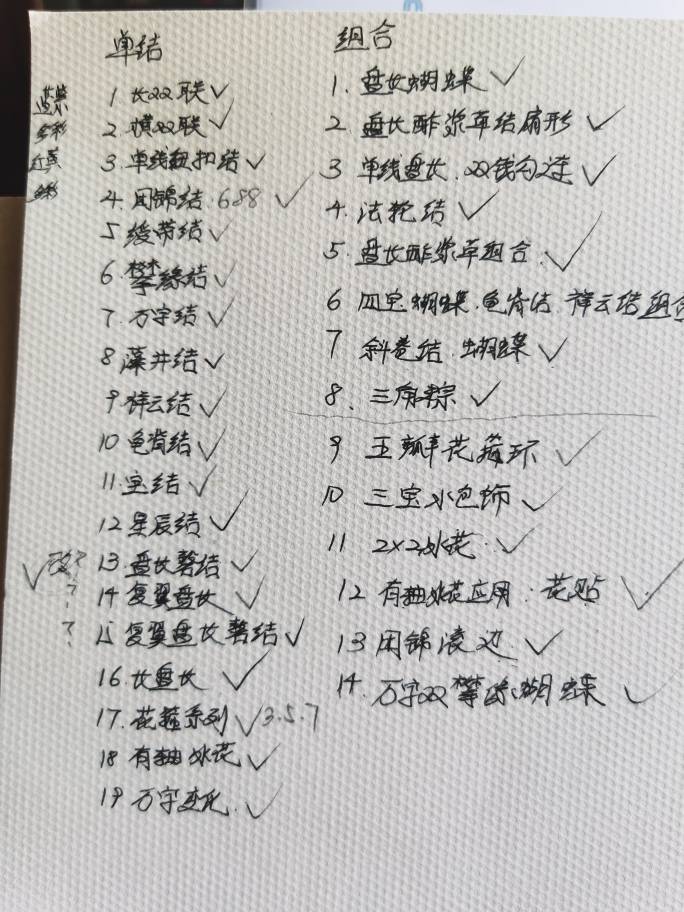 单结
1 长双联 ✓
2. 横双联 ✓
3. 单线纽扣结 ✓
4. 团锦结. 688 ✓
5 绶带结 ✓
6 攀缘结 ✓
7. 万字结 ✓
8 藻井结 ✓
9 祥云结 ✓
10 龟背结 ✓
11. 宝结 ✓
12 星辰结 ✓
13. 盘长磬结 ✓
14 复翼盘长 ✓
15 复翼盘长磬结 ✓
16 长盘长 ✓
17. 花箍系列 ✓ 3.5.7
18 有轴冰花 ✓
19 万字变化. ✓
组合
1. 盘长蝴蝶 ✓
2. 盘长酢浆草结扇形 ✓
3 单线盘长. 双钱勾连 ✓
4. 法轮结 ✓
5. 盘长酢浆草组合. ✓
6 四宝蝴蝶. 龟背结. 祥云结组合
7 斜卷结. 蝴蝶 ✓
8. 三角粽 ✓
9 五瓣花箍环 ✓
10 三宝小包饰 ✓
11 2×2冰花. ✓
12 有轴冰花应用: 花贴 ✓
13 团锦滚边 ✓
14. 万字双攀缘蝴蝶 ✓